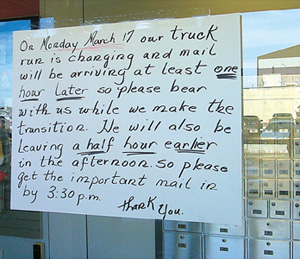 On Monday March 17 our truck
run is changing and mail
will be arriving at least one
hour later so please bear
with us while we make the
transition. We will also be
leaving a half hour earlier
in the afternoon. so please
get the important mail in
by 3:30 p.m.
thank you.